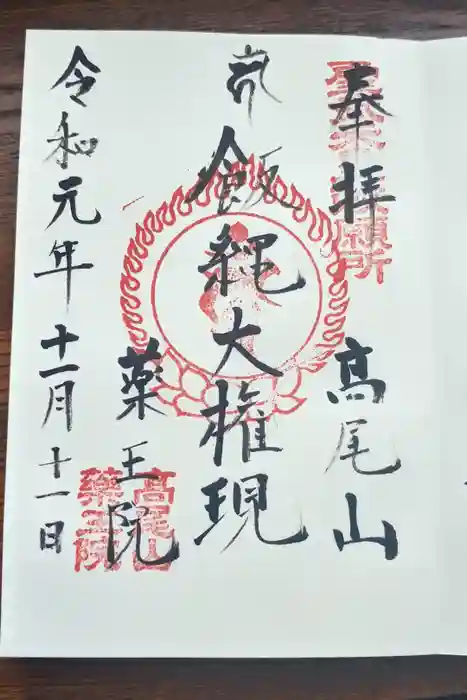 奉拝
高尾山
飯縄大権現
薬王院
令和元年十一月十一日
高尾山
薬王院